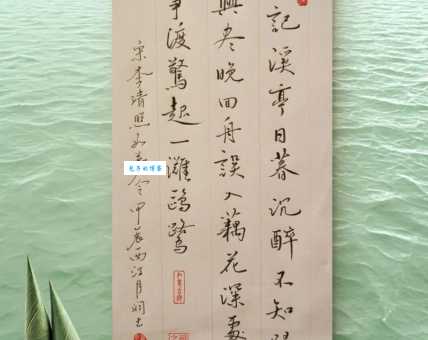 記溪亭日暮沉醉不知
興尽晚回舟誤入藕花深處
爭渡驚起一灘鷗鷺
宋李清照如令甲辰西江月
的博客